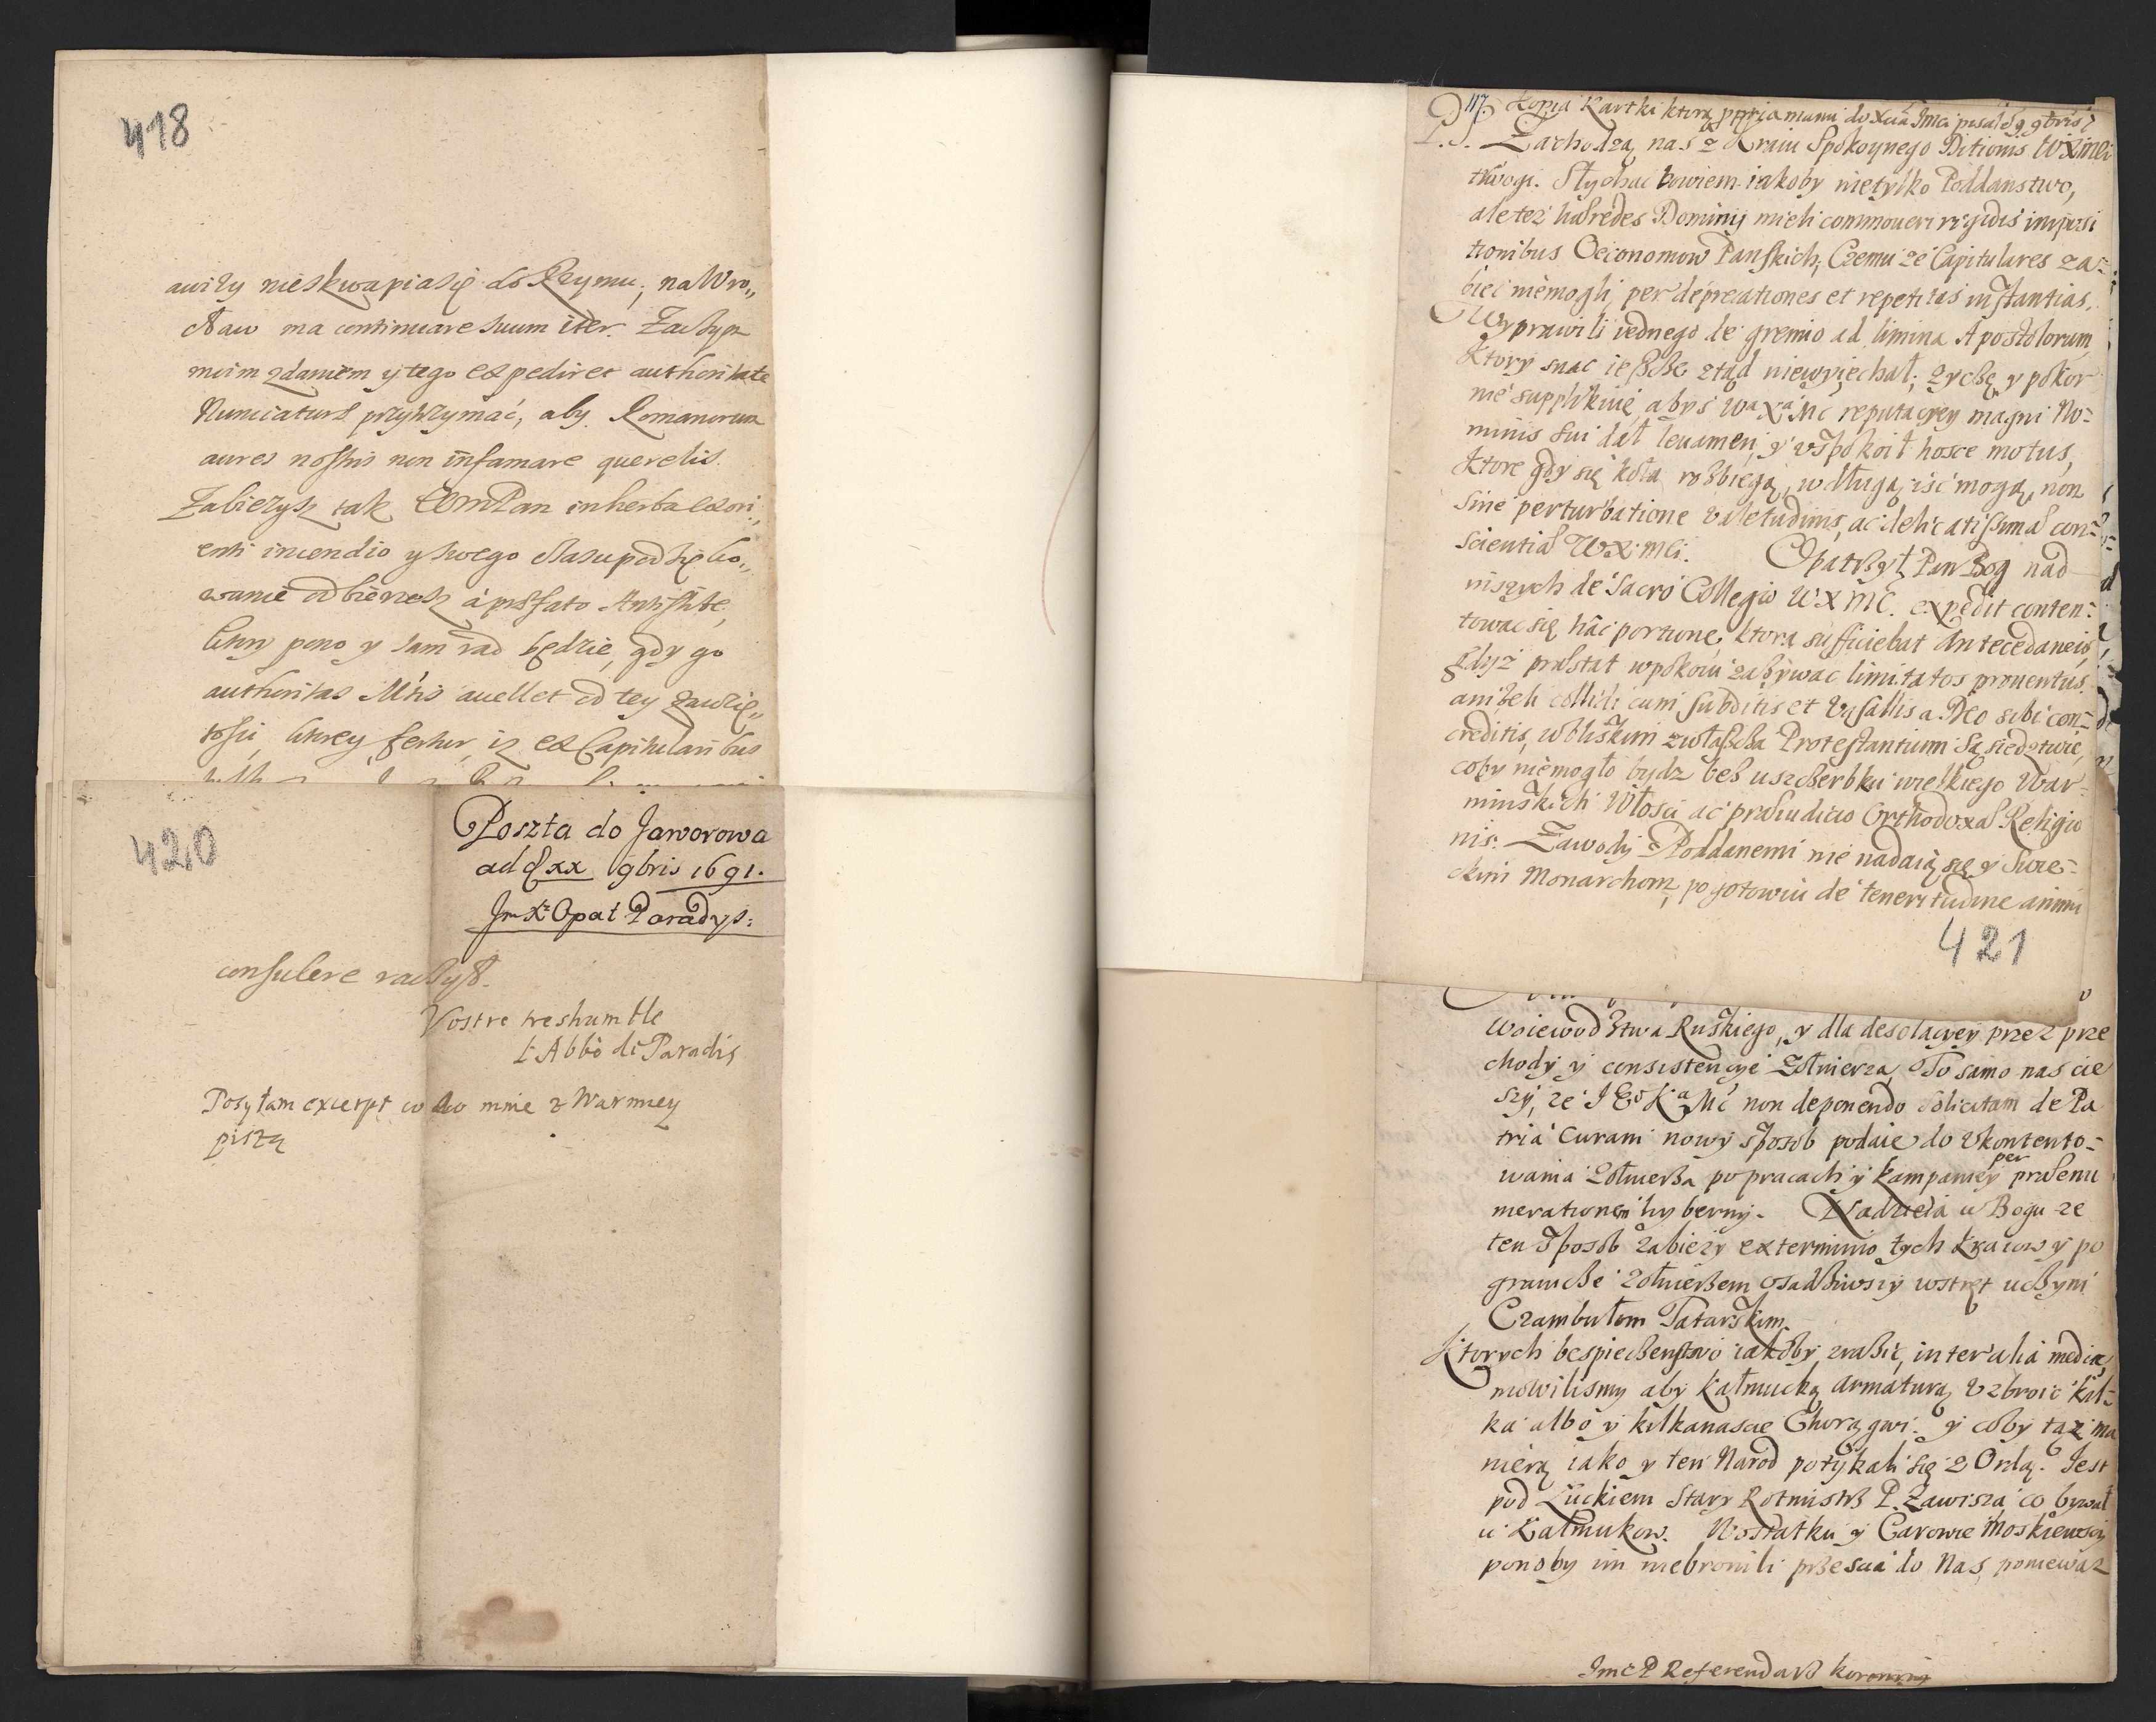 418
awizy nieskwapia się do Rzymu; na Wro„
cław ma continuare suum iter. Zaczym
moim zdaniem y tego expediret authoritate
Nunciaturæ przytrzymać, aby Romanorum
aures nostris non infamare querelis.
Zabieżysz tak WmPan in herba exori„
enti incendio y swego
wanie odbierzesz à præfato Antistite,
ktry pono y sam rad będzie, gdy go
authoritas M'tis auellet od tey zawzię„
tości, ktrey, fertur, iż ex Capitularibus
420
Poszta do Jaworowa
ad xx 9bris 1691.
Jm X: Opat Paradys:
consulere raczysz.
Vostre treshumble
L'Abbè di Paradis
Posyłam excerpt co do mnie z Warmiey
piszą
117. Kopia Kartki ktorą ppria manu do Xcia Jmci pisał 9bris
P. S. Zachodzą nas z Kraiu Spokoynego Ditionis WXMci
trwogi. Słychac bowiem iakoby nietylko Poddanstwo,
ale też hæredes Dominij mieli commoueri rigidis imposi
tionibus Oeconomow Panskich; Czemu że Capitulares za-
biec niemogli, per deprecationes et repetitas instantias.
Wyprawili iednego de gremio ad limina Apostolorum,
Ktory snac ieszcze ztąd niewyiechał; życzę y pokor
nie supplikuię, abyś Wa Xa Mć reputacyey magni No-
minis sui dał leuamen, y vspokoił hosce motus,
Ktore gdy się koła rozbiegą, w długą iść mogą, non
sine perturbatione valetudinis, ac delicatissimæ con-
scientiæ WXMci. Opatrzył Pan Bog nad
inszych de Sacro Collegio WXMC. expedit conten-
towac się hâc portione, ktora sufficiebat Antecedaneis,
gdyż præstat w pokoiu zażywac limitatos prouentus,
aniżeli collidi cum subditis et Vasallis a Deo sibi con-
creditis, w bliskim zwłaszcza Protestantium Sąsiedztwie,
coby niemogło bydz bez uszczerbku wielkiego War-
minskich Włości ac præiudicio Orthodoxæ Religio
nis. Zawody z Poddanemi nie nadaią się y Swie-
ckim Monarchom, pogotowiu de teneritudine animi
421
Woiewodztwa Ruskiego, y dla desolacyey przez prze
chody y consistencye Żołnierza, To samo nas cie
szy, że J Eo Ka Mć non deponendo solicitam de Pa
tria Curam nowy sposob podaie do vkontento-
wania Żołnierza po pracach y kampaniey per prænu
merationem hyberny. Nadzieia w Bogu że
ten sposob zabieży exterminio tych kraiow y po
granicze żołnierzem osadziwszy wstręt uczyni
Czambułom Tatarskim.
Ktorych bespieczenstwo iakoby znaźić, inter alia media,
mowilismy aby Kałmucką Armaturą vzbroic kil-
ka albo y kilkanascie Chorągwi. y coby tąż ma
nierą iako y ten Narod potykali się z Ordą. Jest
pod Łuckiem Stary Rotmistrz P. Zawisza, co bywał
u Kałmukow. Wostatku y Carowie Moskiewscy
ponoby im niebronili przescia do Nas, poniewaz
Jmć P Referendarz koronny